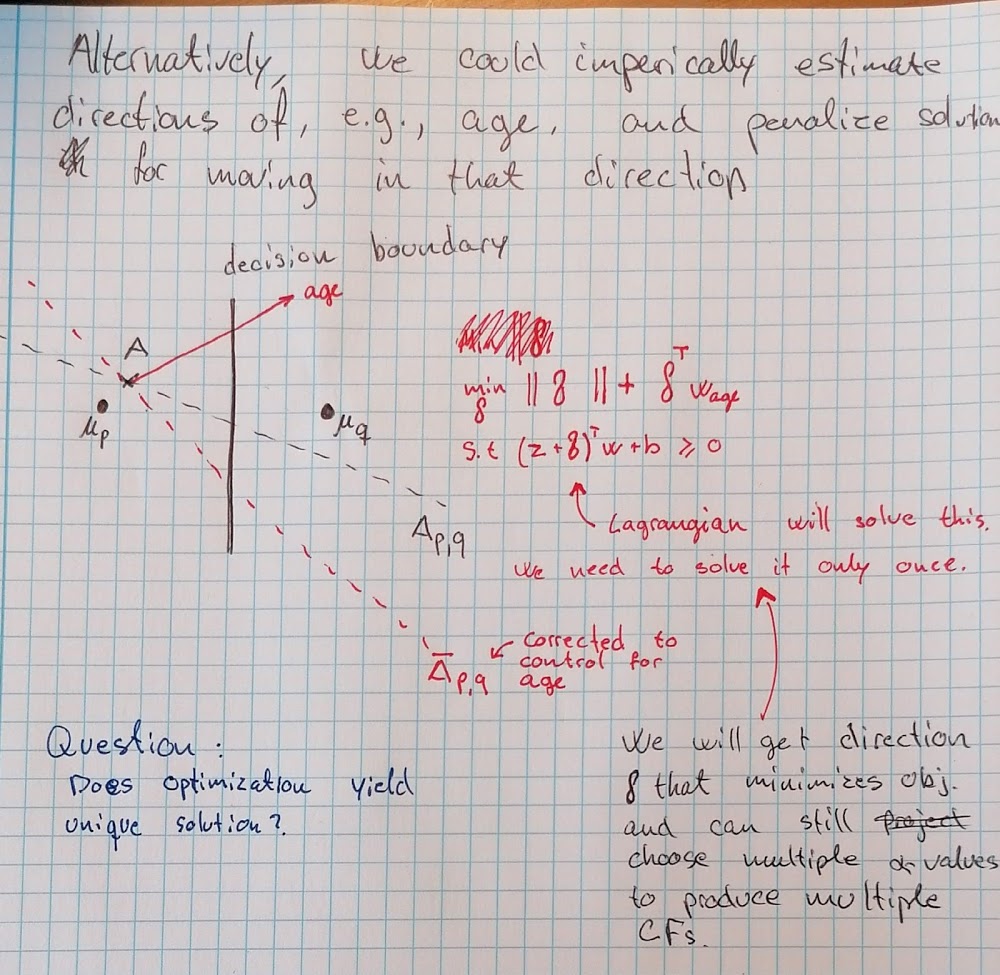 Alternatively, we could imperically estimate
directions of, e.g., age, and penalize solution
for moving in that direction
decision boundary
age
A
μp
μq
Ap,q
min || δ || + δᵀ wage
δ
s.t (z+δ)ᵀw + b ≥ 0
Lagrangian will solve this.
We need to solve it only once.
Āp,q
corrected to
control for
age
Question:
Does optimization yield
unique solution?
We will get direction
δ that minimizes obj.
and can still project
choose multiple α-values
to produce multiple
CFs.